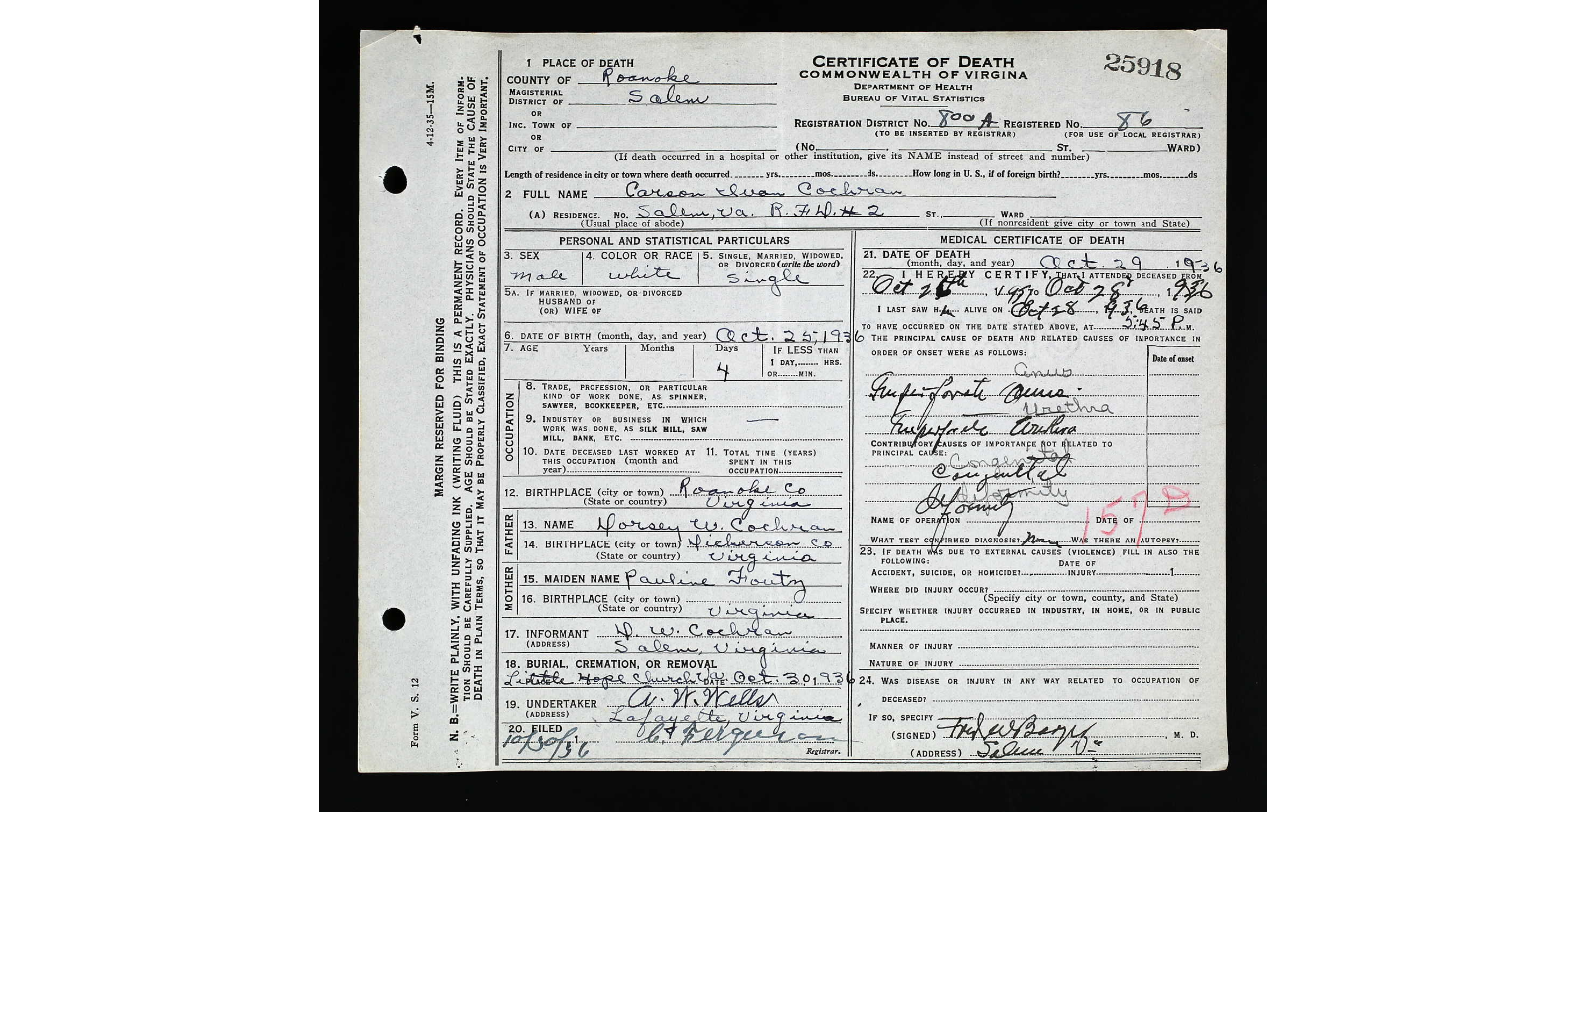 1 PLACE OF DEATH
COUNTY OF Roanoke
MAGISTERIAL DISTRICT OF Salem
OR
INC. TOWN OF
OR
CITY OF
CERTIFICATE OF DEATH
COMMONWEALTH OF VIRGINA
DEPARTMENT OF HEALTH
BUREAU OF VITAL STATISTICS
25918
REGISTRATION DISTRICT NO. 800 A REGISTERED NO. 86
(TO BE INSERTED BY REGISTRAR) (FOR USE OF LOCAL REGISTRAR)
(No. ST. WARD)
(If death occurred in a hospital or other institution, give its NAME instead of street and number)
Length of residence in city or town where death occurred yrs. mos. ds. How long in U. S., if of foreign birth? yrs. mos. ds
2 FULL NAME Carson Ivan Cochran
(A) RESIDENCE. No. Salem, Va. R.F.D. # 2 ST., WARD
(Usual place of abode) (If nonresident give city or town and State)
PERSONAL AND STATISTICAL PARTICULARS
3. SEX male
4. COLOR OR RACE white
5. SINGLE, MARRIED, WIDOWED, OR DIVORCED (write the word) Single
5A. IF MARRIED, WIDOWED, OR DIVORCED
HUSBAND OF
(OR) WIFE OF
6. DATE OF BIRTH (month, day, and year) Oct. 25, 1936
7. AGE Years Months Days IF LESS THAN
4 1 DAY, HRS.
OR MIN.
OCCUPATION
8. TRADE, PROFESSION, OR PARTICULAR
KIND OF WORK DONE, AS SPINNER,
SAWYER, BOOKKEEPER, ETC.
9. INDUSTRY OR BUSINESS IN WHICH
WORK WAS DONE, AS SILK MILL, SAW
MILL, BANK, ETC.
10. DATE DECEASED LAST WORKED AT THIS OCCUPATION (month and year)
11. TOTAL TIME (YEARS) SPENT IN THIS OCCUPATION
12. BIRTHPLACE (city or town) Roanoke Co
(State or country) Virginia
FATHER
13. NAME Dorsey W. Cochran
14. BIRTHPLACE (city or town) Dickerson Co
(State or country) Virginia
MOTHER
15. MAIDEN NAME Pauline Foutz
16. BIRTHPLACE (city or town)
(State or country) Virginia
17. INFORMANT D. W. Cochran
(ADDRESS) Salem, Virginia
18. BURIAL, CREMATION, OR REMOVAL
PLACE Little Hope Church Va. DATE Oct. 30, 1936
19. UNDERTAKER A. W. Wells
(ADDRESS) Lafayette, Virginia
20. FILED 10/30/36 Ferguson
Registrar.
MEDICAL CERTIFICATE OF DEATH
21. DATE OF DEATH
(month, day, and year) Oct. 29, 1936
22. I HEREBY CERTIFY, THAT I ATTENDED DECEASED FROM
Oct TO Oct 28, 1936
I LAST SAW H ALIVE ON Oct 28, 1936 DEATH IS SAID
TO HAVE OCCURRED ON THE DATE STATED ABOVE, AT 5:45 P.M.
THE PRINCIPAL CAUSE OF DEATH AND RELATED CAUSES OF IMPORTANCE IN
ORDER OF ONSET WERE AS FOLLOWS: Date of onset
Anus
Imperforate Anus
Urethra
Imperforate Urethra
CONTRIBUTORY CAUSES OF IMPORTANCE NOT RELATED TO
PRINCIPAL CAUSE:
Congenital
Congenital
Deformity
Deformity
157 D
NAME OF OPERATION DATE OF
WHAT TEST CONFIRMED DIAGNOSIS? None WAS THERE AN AUTOPSY?
23. IF DEATH WAS DUE TO EXTERNAL CAUSES (VIOLENCE) FILL IN ALSO THE
FOLLOWING: DATE OF
ACCIDENT, SUICIDE, OR HOMICIDE? INJURY 1
WHERE DID INJURY OCCUR?
(Specify city or town, county, and State)
SPECIFY WHETHER INJURY OCCURRED IN INDUSTRY, IN HOME, OR IN PUBLIC
PLACE.
MANNER OF INJURY
NATURE OF INJURY
24. WAS DISEASE OR INJURY IN ANY WAY RELATED TO OCCUPATION OF
DECEASED?
IF SO, SPECIFY
(SIGNED) M. D.
(ADDRESS) Salem Va
MARGIN RESERVED FOR BINDING
N. B.—WRITE PLAINLY, WITH UNFADING INK (WRITING FLUID) THIS IS A PERMANENT RECORD. EVERY ITEM OF INFORM-
TION SHOULD BE CAREFULLY SUPPLIED. AGE SHOULD BE STATED EXACTLY. PHYSICIANS SHOULD STATE THE CAUSE OF
DEATH IN PLAIN TERMS, SO THAT IT MAY BE PROPERLY CLASSIFIED. EXACT STATEMENT OF OCCUPATION IS VERY IMPORTANT.
Form V. S. 12
4-12-35—15M.